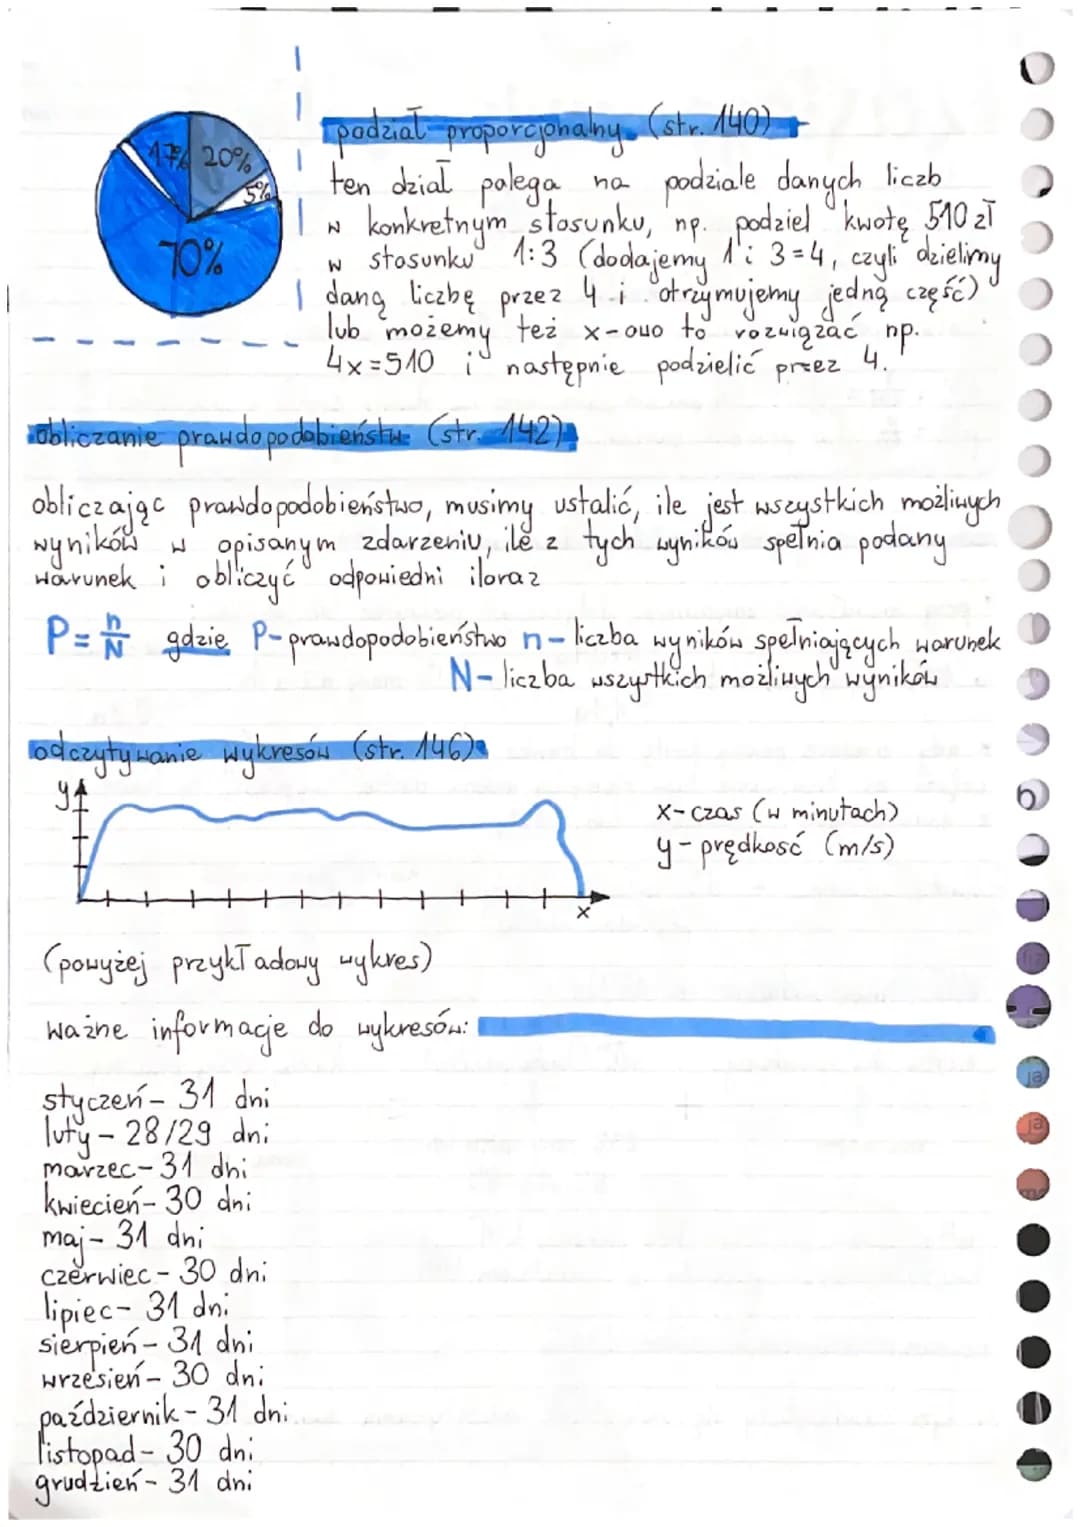 17%
20%
5%
70%
podział proporcjonalny (str. 140)
ten dział polega na podziale danych liczb
w konkretnym stosunku, np. podziel kwotę 510 zł
w stosunku 1:3 (dodajemy 1 i 3 = 4, czyli dzielimy
daną liczbę przez 4 i otrzymujemy jedną część)
lub możemy też x-owo to rozwiązać np.
4x = 510 i następnie podzielić przez 4.
obliczanie prawdopodobieństw (str. 142)
obliczając prawdopodobieństwo, musimy ustalić, ile jest wszystkich możliwych
wyników w opisanym zdarzeniu, ile z tych wyników spełnia podany
warunek i obliczyć odpowiedni iloraz
P = n/N gdzie P - prawdopodobieństwo n - liczba wyników spełniających warunek
N - liczba wszystkich możliwych wyników
odczytywanie wykresów (str. 146)
y
x - czas (w minutach)
y - prędkość (m/s)
x
(powyżej przykładowy wykres)
ważne informacje do wykresów:
styczeń - 31 dni
luty - 28/29 dni
marzec - 31 dni
kwiecień - 30 dni
maj - 31 dni
czerwiec - 30 dni
lipiec - 31 dni
sierpień - 31 dni
wrzesień - 30 dni
październik - 31 dni
listopad - 30 dni
grudzień - 31 dni